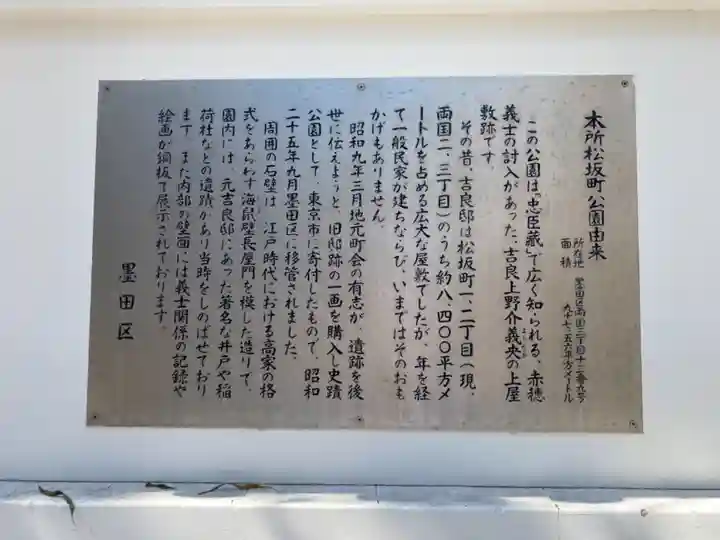 本所松坂町公園由来
所在地　墨田区両国三丁目十三番九号
面積　九七、五六平方メートル
この公園は「忠臣蔵」で広く知られる、赤穂
義士の討入があった、吉良上野介義央の上屋
敷跡です。
その昔、吉良邸は松坂町一、二丁目（現、
両国二、三丁目）のうち約八、四〇〇平方メ
ートルを占める広大な屋敷でしたが、年を経
て一般民家が建ちならび、いまではそのおも
かげもありません。
昭和九年三月地元町会の有志が、遺跡を後
世に伝えようと、旧邸跡の一画を購入し史蹟
公園として、東京市に寄付したもので、昭和
二十五年九月墨田区に移管されました。
周囲の石壁は、江戸時代における高家の格
式をあらわす海鼠壁長屋門を模した造りで、
園内には、元吉良邸にあった著名な井戸や稲
荷社などの遺蹟があり当時をしのばせており
ます。また内部の壁面には義士関係の記録や
絵画が銅板で展示されております。
墨田区